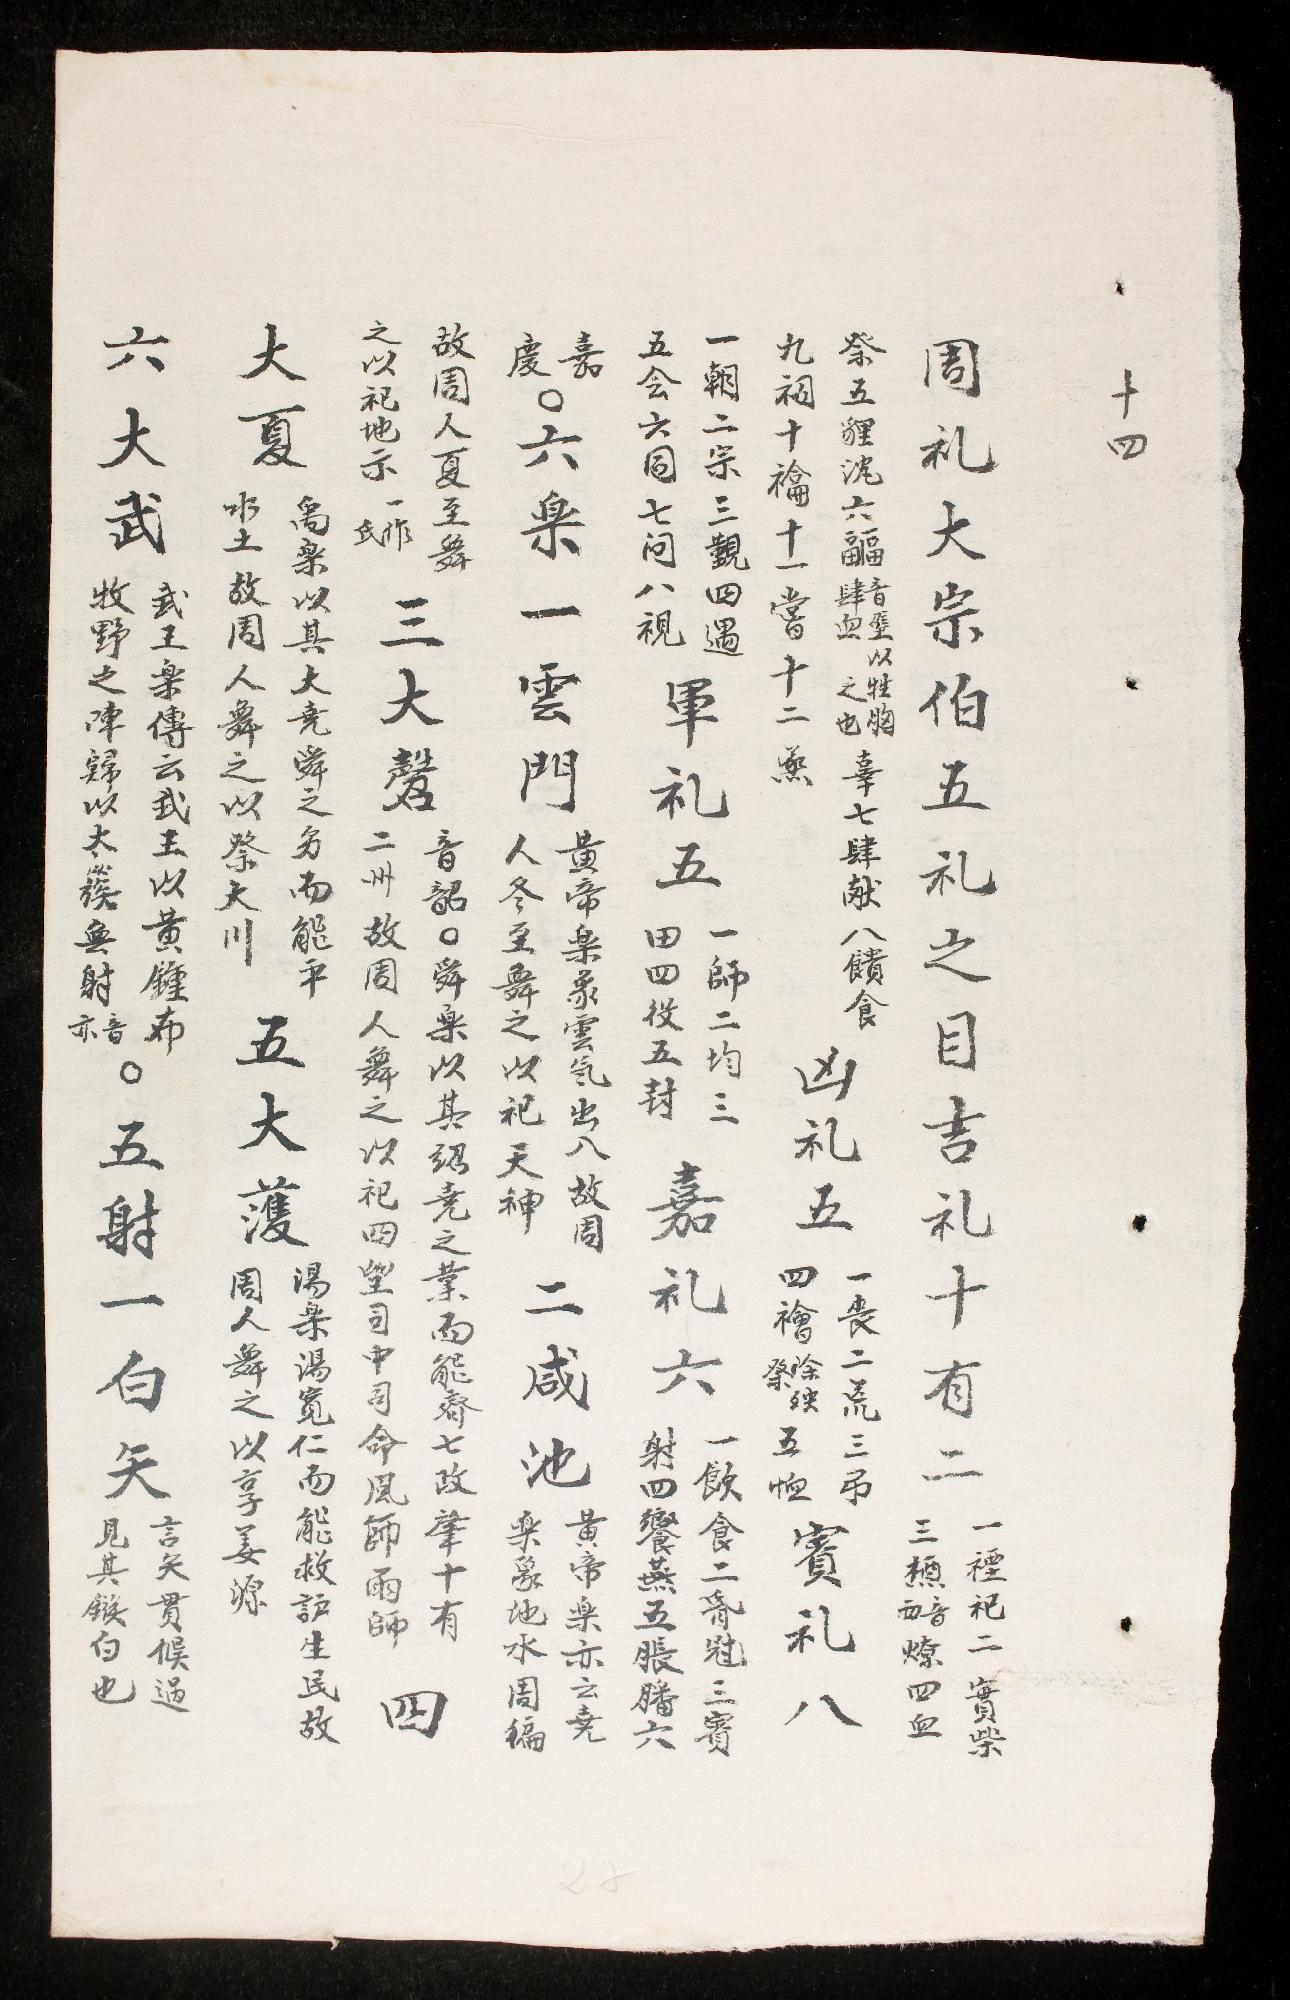 十四
周礼大宗伯五礼之目吉礼十有二 一禋祀二實柴三槱音酉燎四血
祭五貍沈六疈音壁以牲胸肆血之也辜七肆献八饋食九祠十禴十一嘗十二烝 凶礼五 一喪二荒三弔四襘除殃祭五恤 賓礼八
一朝二宗三覲四遇五会六同七问八視 軍礼五 一師二均三田四役五封 嘉礼六 一飲食二昏冠三賓射四饗燕五脤膰六
嘉慶○六楽一雲門 黄帝楽象雲气出入故周人冬至舞之以祀天神 二咸池 黄帝楽亦云堯楽象地水周徧
故周人夏至舞之以祀地示一作氏 三大磬 音韶○舜楽以其紹堯之業而能齊七政肇十有二州故周人舞之以祀四望司中司命風師雨師 四
大夏 禹楽以其大堯舜之功而能平水土故周人舞之以祭大川 五大護 湯楽湯寬仁而能救護生民故周人舞之以享姜源
六大武 武王楽傳云武王以黄鍾布牧野之陣歸以太蔟無射音亦○五射一白矢 言矢貫候過見其鏃白也